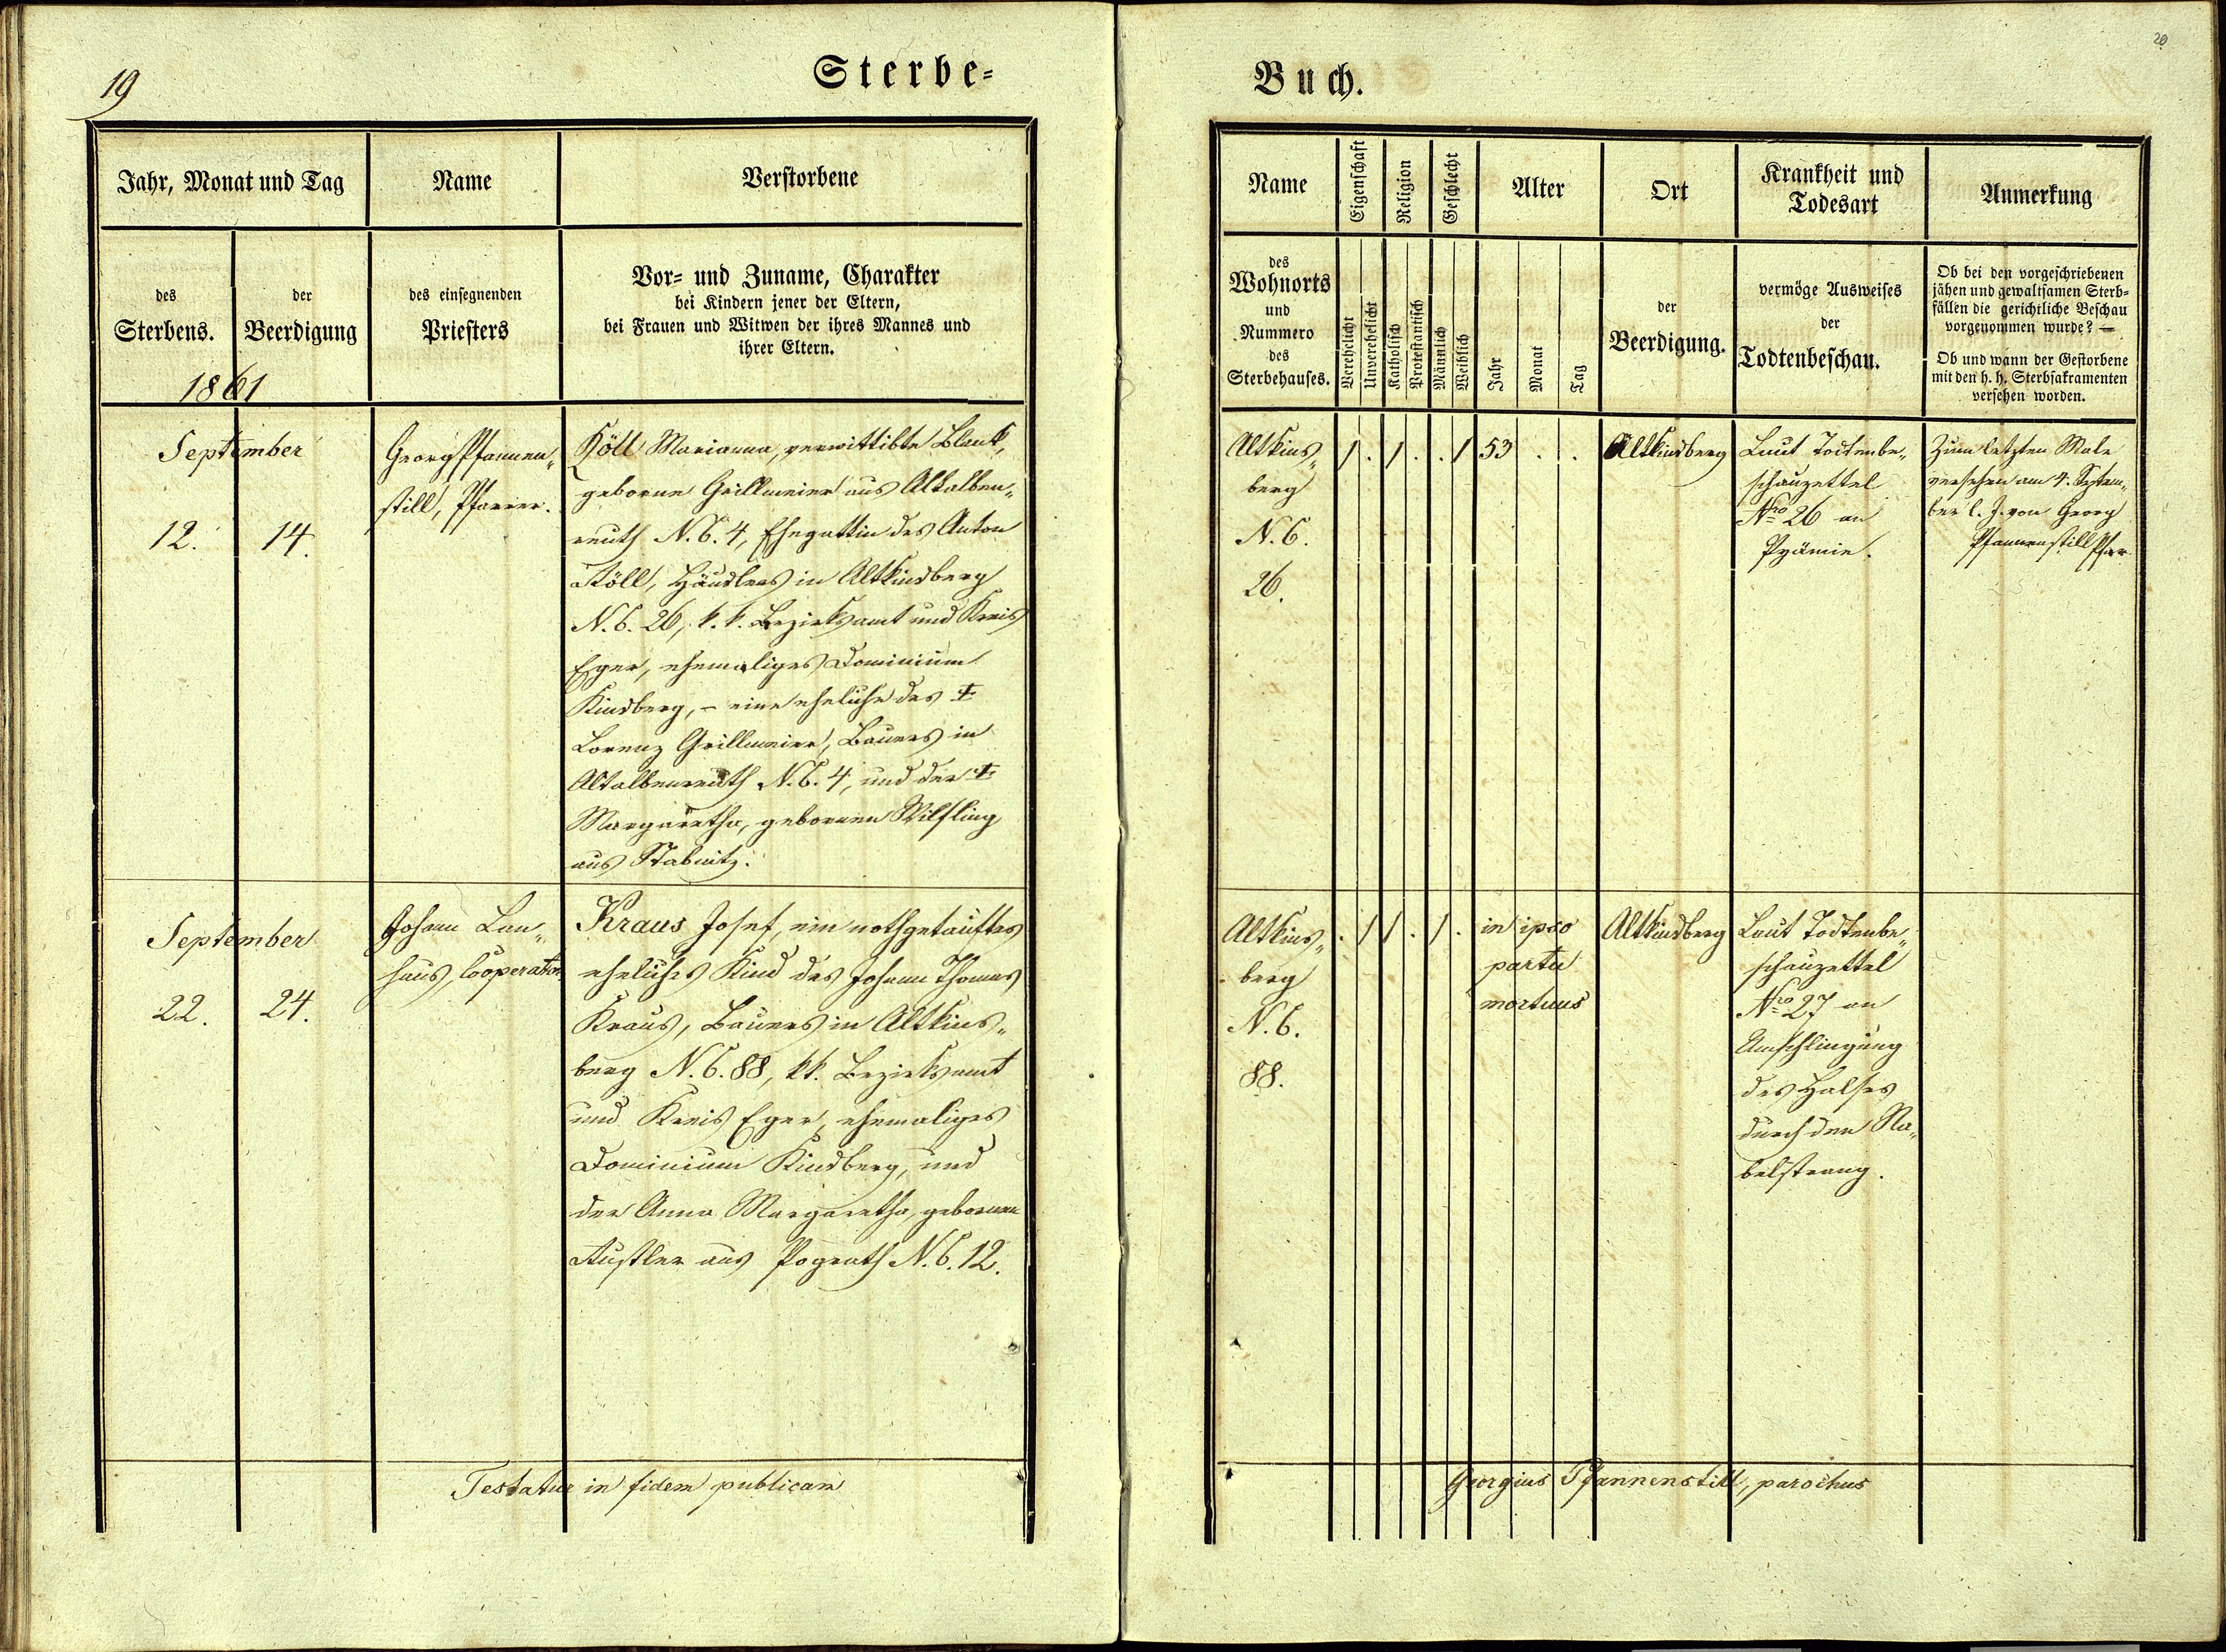 19
Sterbe=
Jahr, Monat und Tag
Name
Verstorbene
des
Sterbens.
der
Beerdigung
des einsegnenden
Priesters
Vor= und Zuname, Charakter
bei Kindern jener der Eltern,
bei Frauen und Witwen der ihres Mannes und
ihrer Eltern.
1861
September
12.
14.
Georg Pfannen„
still, Pfarrer.
Köll Marianna, verwittibte Blank,
geborne Grillmeier aus Altalben„
reuth N. C. 4, Ehegattin des Anton
Köll, Häuslers in Altkinsberg
N. C. 26, k. k. Bezirksamt und Kreis
Eger, ehemaliges Dominium
Kinsberg, – eine eheliche des ‡
Lorenz Grillmeier, Bauers in
Altalbenreuth N. C. 4, und der ‡
Margaretha, gebornen Wilfling
aus Stabnitz.
September
22.
24.
Johann Lan„
haus, Cooperator
Kraus Josef, ein nothgetauftes
eheliches Kind des Johann Thomas
Kraus, Bauers in Altkins„
berg N. C. 88, kk. Bezirksamt
und Kreis Eger, ehemaliges
Dominium Kinsberg, und
der Anna Margaretha, gebornen
aus Pograth N. C. 12.
Testatur in fidem publicam
20
Buch.
Name
Eigenschaft
Religion
Geschlecht
Alter
Ort
Krankheit und
Todesart
Anmerkung
des
Wohnorts
und
Nummero
des
Sterbehauses.
Verehelicht
Unverehelicht
Katholisch
Protestantisch
Männlich
Weiblich
Jahr
Monat
Tag
der
Beerdigung.
vermöge Ausweises
der
Todtenbeschau.
Ob bei den vorgeschriebenen
jähen und gewaltsamen Sterb=
fällen die gerichtliche Beschau
vorgenommen wurde? —
Ob und wann der Gestorbene
mit den h. h. Sterbsakramenten
versehen worden.
Altkins„
berg
N. C.
26.
/ . / . . / 53 . .
Altkinsberg
Laut Todtenbe„
schauzettel
Nro 26 an
Pyämie.
Zum letzten Male
versehen am 4. Septem„
ber l. J. von Georg
Pfannenstill Pfr
Altkins„
berg
N. C.
88.
. / / . / .
in ipso
partu
mortuus
Altkinsberg
Laut Todtenbe„
schauzettel
Nro 27 an
Umschlingung
des Halses
durch den Na„
belstrang.
Georgius Pfannenstill, parochus